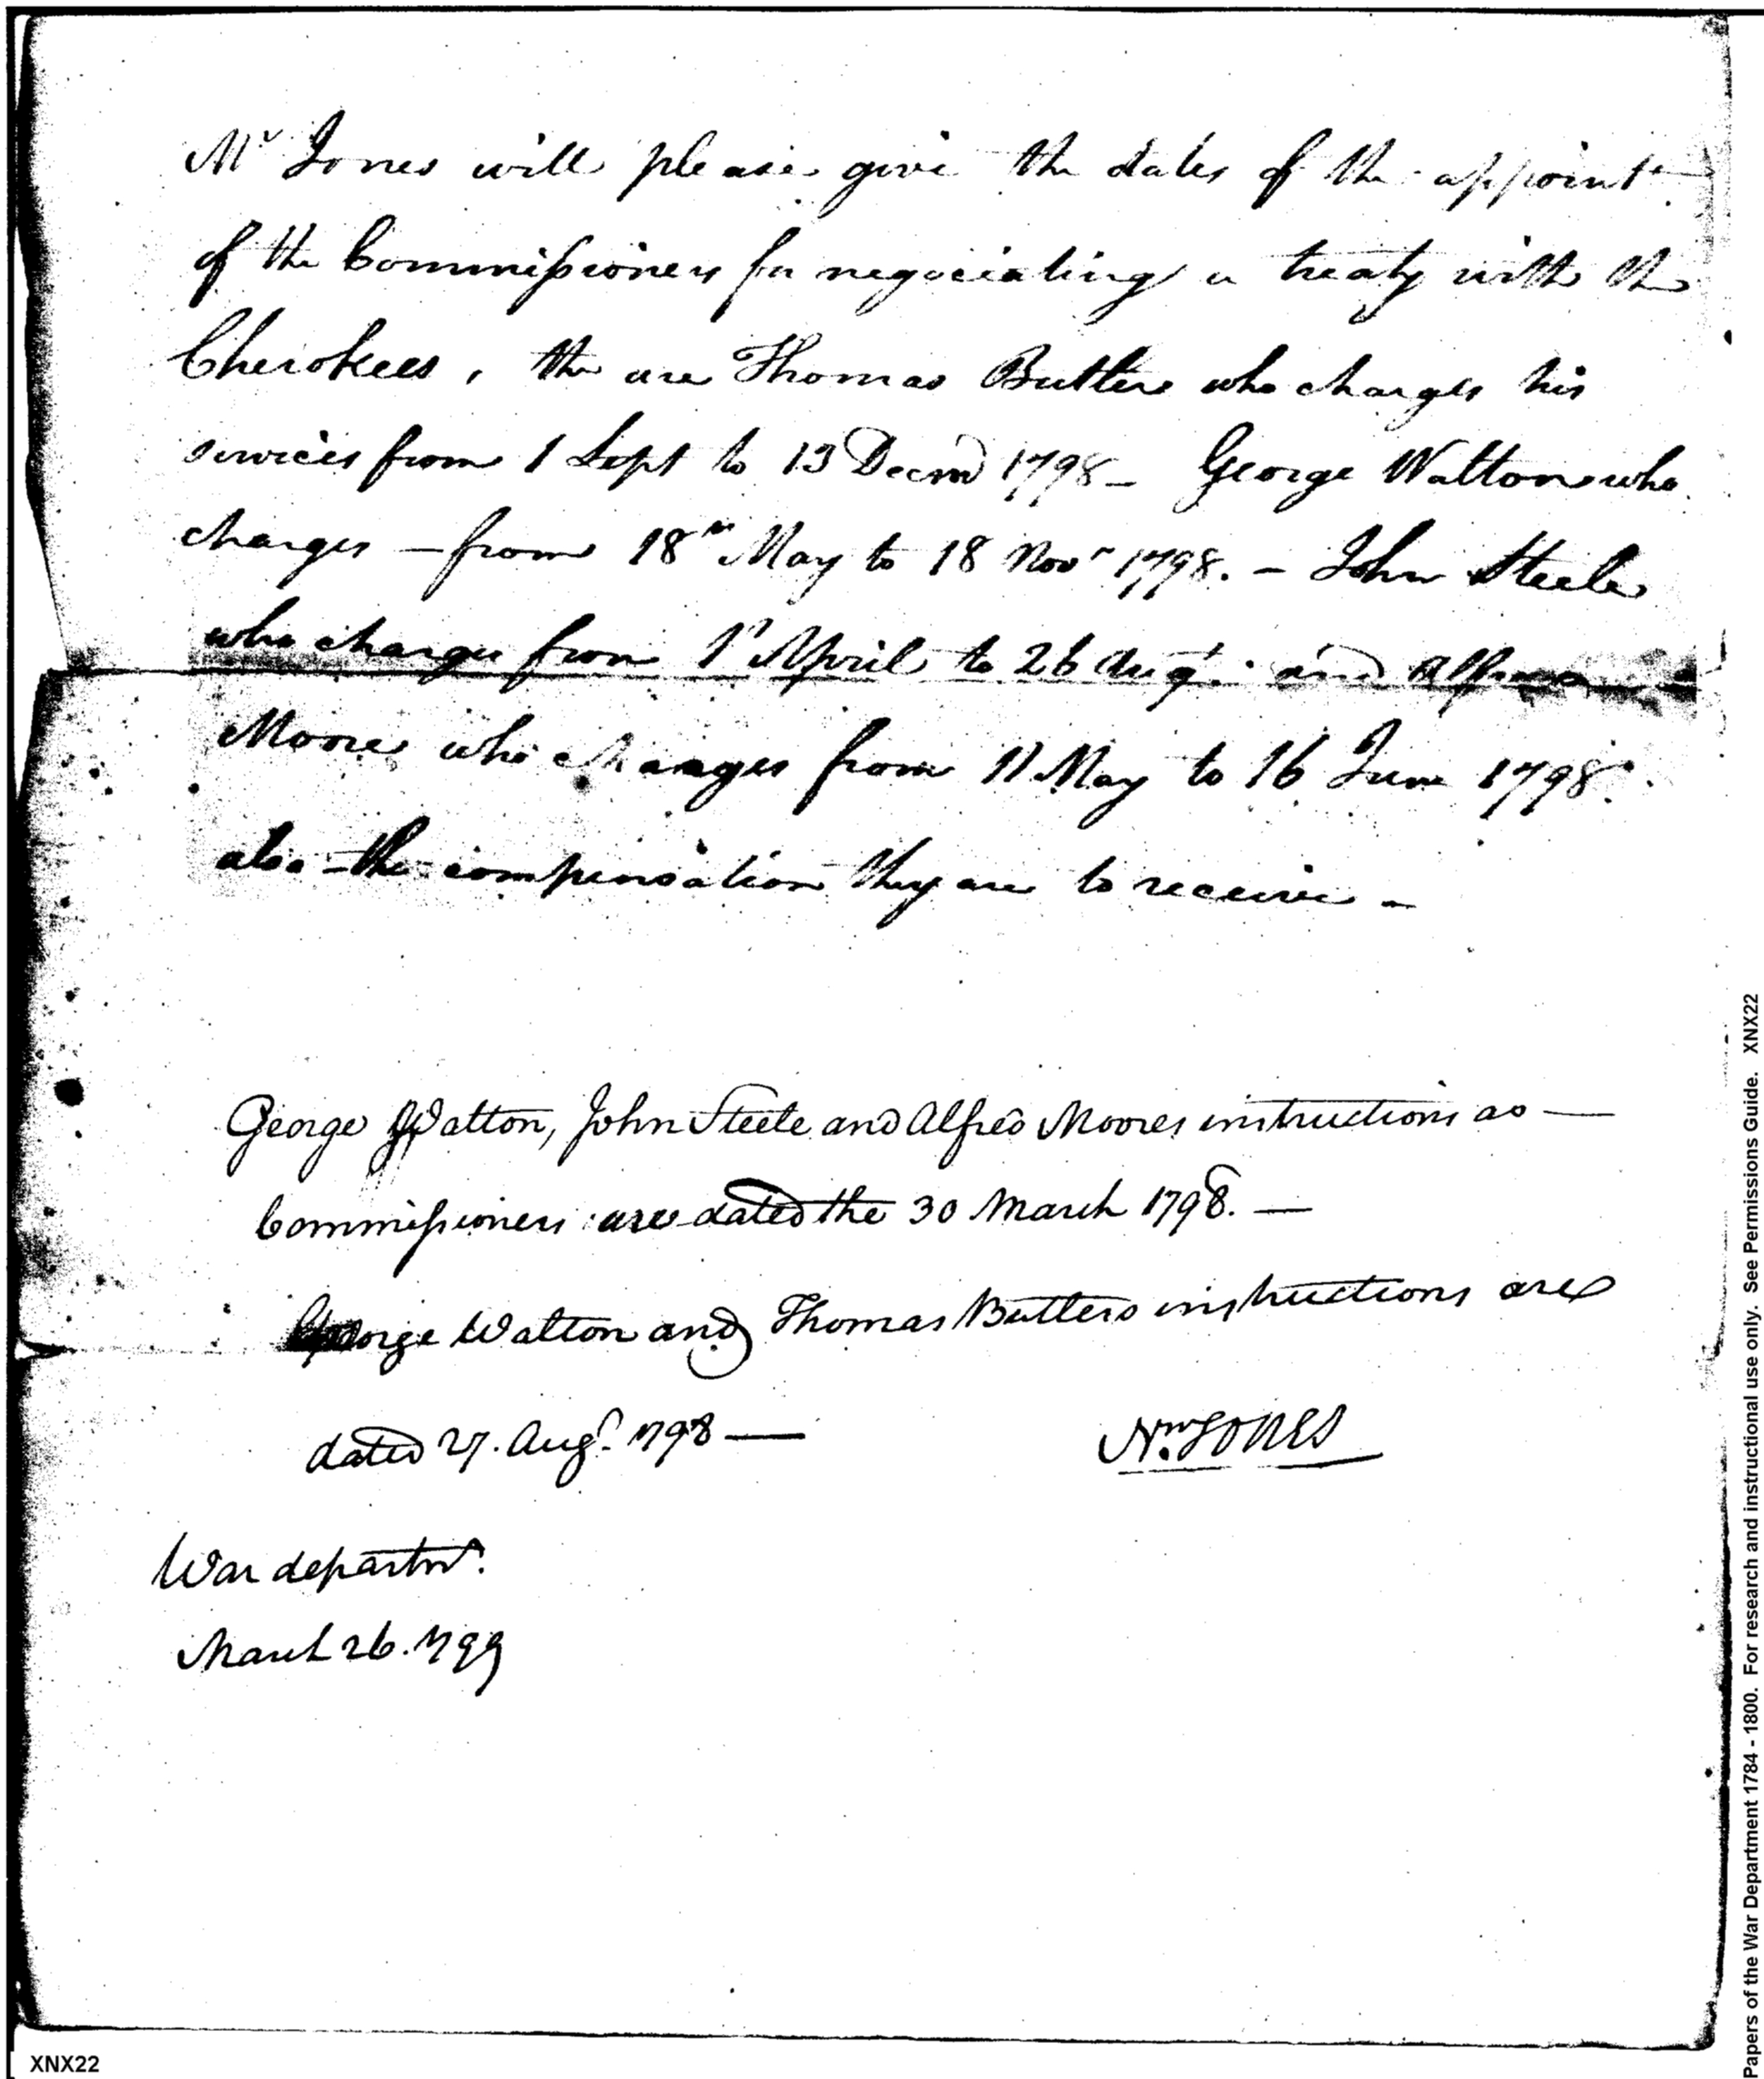 Mr Jones will please give the dates of the appointt
of the Commissioners for negociating a treaty with the
Cherokees, the are Thomas Butler who charges his
services from 1 Sept to 13 Decm 1798 — George Walton who
charges — from 18th May to 18 Novr 1798. — John Steele
who charges from 1st April to 26 Augt. and
Moore who charges from 11 May to 16 June 1798.
also the compensation they are to receive —
George Walton, John Steele and Alfred Moores instructions as —
Commissioners are dated the 30 March 1798. —
George Walton and Thomas Butlers instructions are
dated 27. Augt. 1798 —
Nw. JONES
War departmt.
March 26. 1799
XNX22
Papers of the War Department 1784 - 1800. For research and instructional use only. See Permissions Guide. XNX22